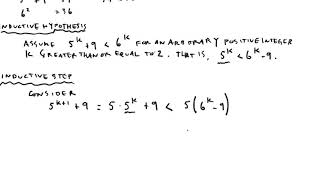 6² = 36
INDUCTIVE HYPOTHESIS
ASSUME 5^k + 9 < 6^k FOR AN ARBITRARY POSITIVE INTEGER
K GREATER THAN OR EQUAL TO 2. THAT IS, 5^k < 6^k - 9.
INDUCTIVE STEP
CONSIDER
5^{k+1} + 9 = 5 · 5^k + 9 < 5(6^k - 9)